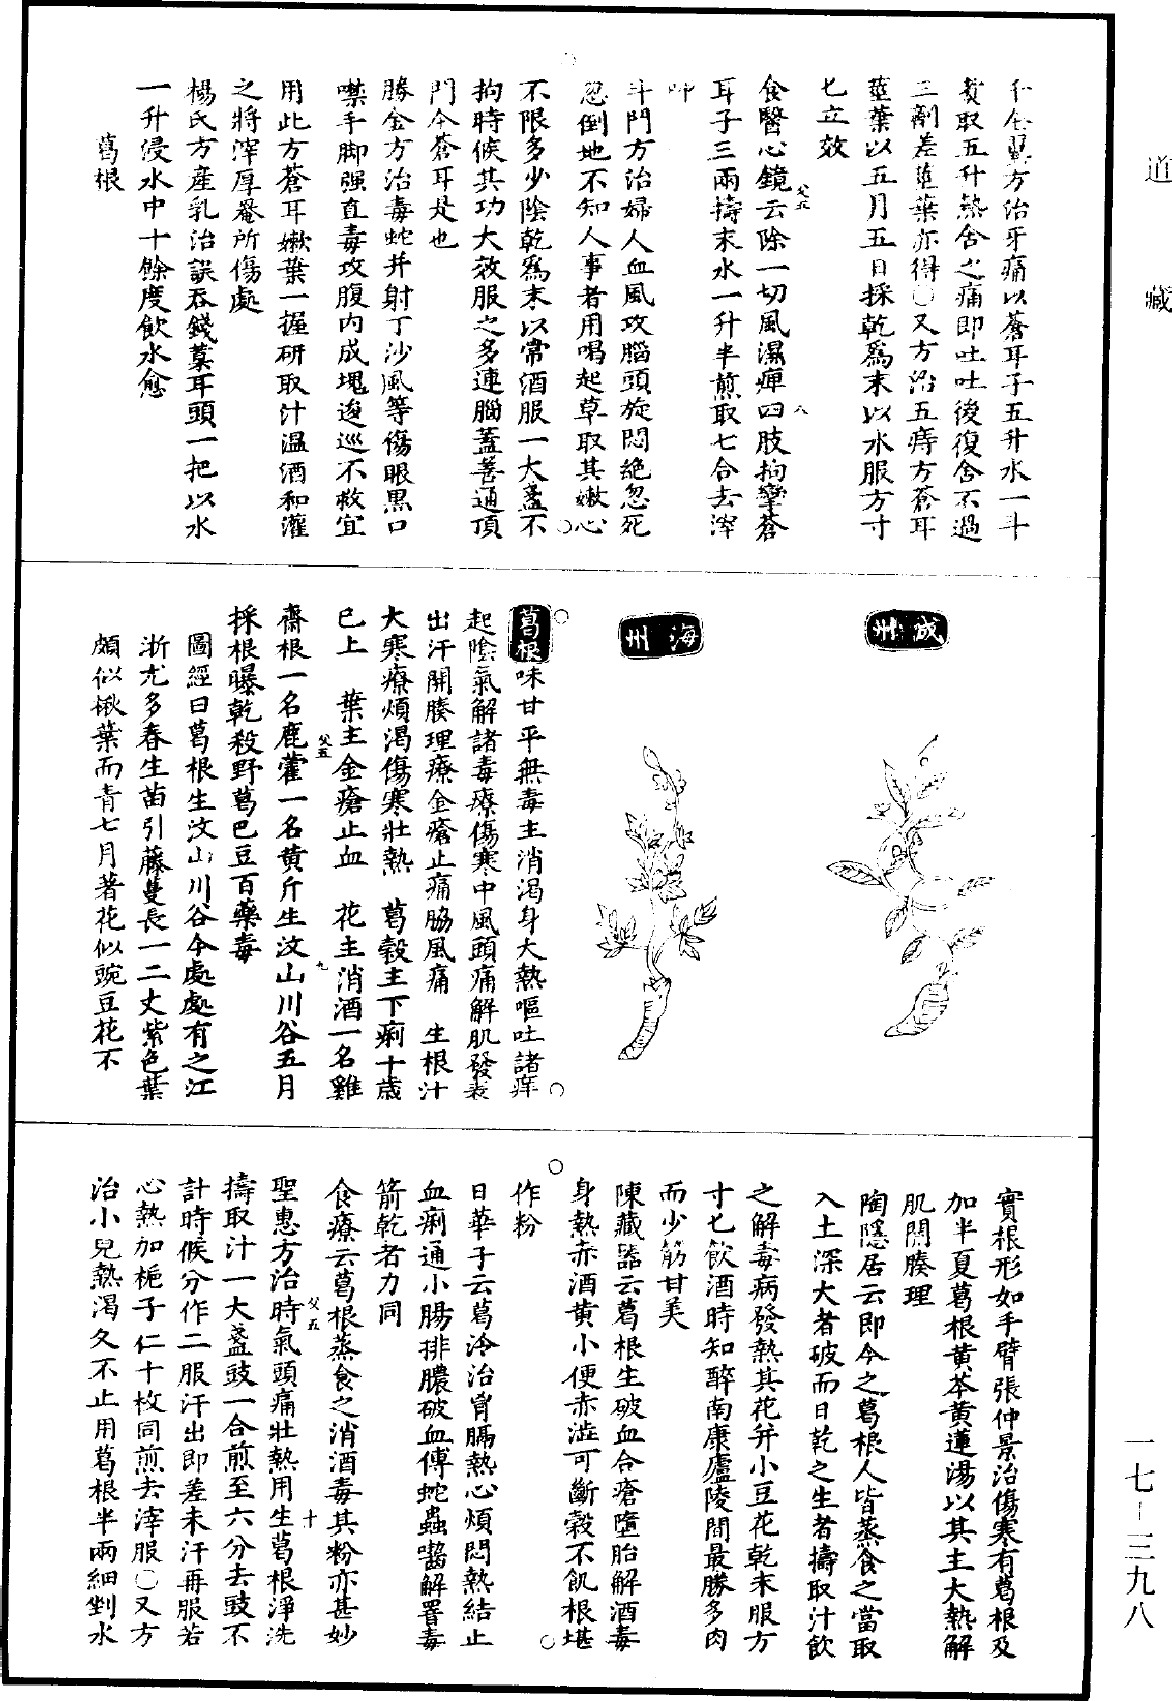 道藏
千金翼方治牙痛以蒼耳子五升水一斗
煑取五升熱含之痛即吐吐後復含不過
三劑差莖葉亦得○又方治五痔方蒼耳
莖葉以五月五日採乾爲末以水服方寸
匕立效
食醫心鏡云除一切風濕痺四肢拘攣蒼
耳子三兩擣末水一升半煎取七合去滓
呷
斗門方治婦人血風攻腦頭旋悶絶忽死
忽倒地不知人事者用喝起草取其嫩心
不限多少陰乾爲末以常酒服一大盞不
拘時候其功大效服之多連腦蓋善通頂
門今蒼耳是也
勝金方治毒蛇并射丁沙風等傷眼黒口
噤手脚强直毒攻腹内成塊逡巡不救宜
用此方蒼耳嫩葉一握研取汁温酒和灌
之將滓厚罨所傷處
楊氏方産乳治誤吞錢葉耳頭一把以水
一升浸水中十餘度飲水愈
葛根
父五
八
成州
海州
葛根味甘平無毒主消渴身大熱嘔吐諸痺
起陰氣解諸毒療傷寒中風頭痛解肌發表
出汗開腠理療金瘡止痛脇風痛 生根汁
大寒療煩渴傷寒壯熱 葛穀主下痢十歳
已上 葉主金瘡止血 花主消酒一名雞
齋根一名鹿藿一名黄斤生汶山川谷五月
採根曝乾殺野葛巴豆百藥毒
圖經曰葛根生汶山川谷今處處有之江
浙尤多春生苗引藤蔓長一二丈紫色葉
頗似楸葉而青七月著花似豌豆花不
父五
九
實根形如手臂張仲景治傷寒有葛根及
加半夏葛根黄芩黄蓮湯以其主大熱解
肌開腠理
陶隱居云即今之葛根人皆蒸食之當取
入土深大者破而日乾之生者擣取汁飲
之解毒病發熱其花并小豆花乾末服方
寸匕飲酒時知醉南康廬陵間最勝多肉
而少筋甘美
陳藏器云葛根生破血合瘡墮胎解酒毒
身熱赤酒黄小便赤澁可斷穀不飢根堪
作粉
日華子云葛冷治胷膈熱心煩悶熱結止
血痢通小腸排膿破血傅蛇蟲嚙解署毒
箭乾者力同
食療云葛根蒸食之消酒毒其粉亦甚妙
聖惠方治時氣頭痛壯熱用生葛根淨洗
擣取汁一大盞豉一合煎至六分去豉不
計時候分作二服汗出即差未汗再服若
心熱加梔子仁十枚同煎去滓服○又方
治小兒熱渴久不止用葛根半兩細剉水
父五
十
一七-三九八